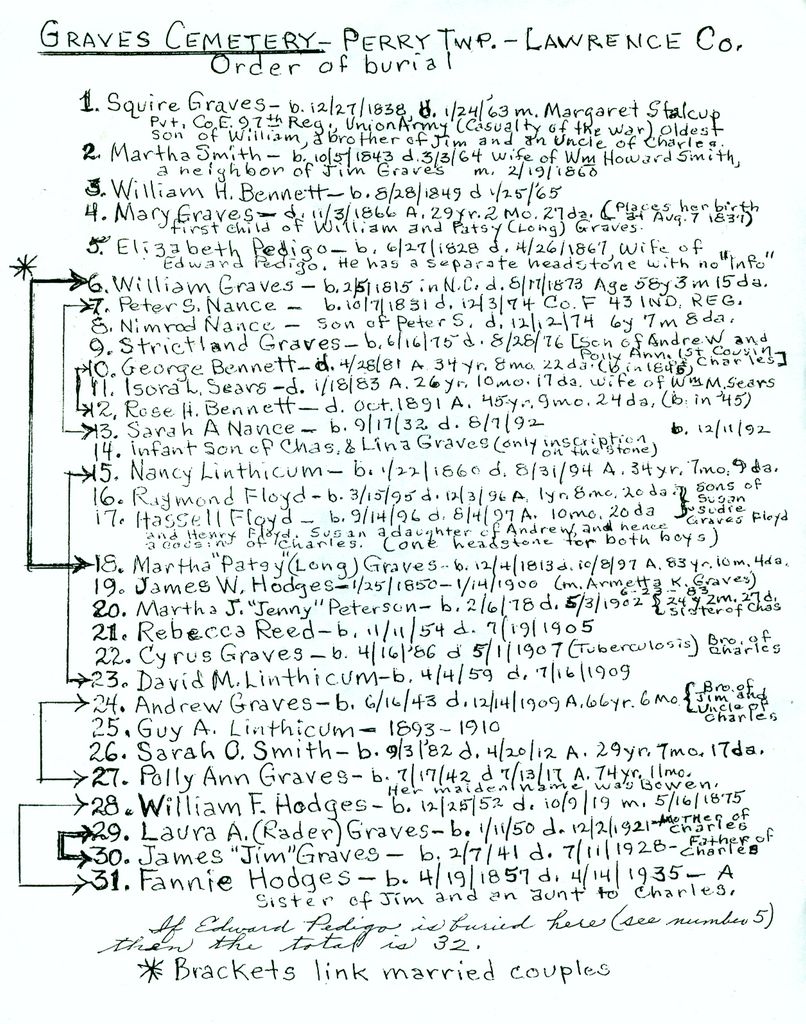 GRAVES CEMETERY - PERRY TWP. - LAWRENCE CO.
Order of burial
1. Squire Graves - b. 12/27/1838, d. 1/24/'63 m. Margaret Stalcup
Pvt. Co. E. 97th Reg., Union Army (Casualty of the war) oldest
son of William, a brother of Jim and an Uncle of Charles.
2. Martha Smith - b. 10/5/1843 d. 3/3/64 wife of Wm Howard Smith,
a neighbor of Jim Graves m. 2/19/1860
3. William H. Bennett - b. 8/28/1849 d 1/25/'65
4. Mary Graves - d. 11/3/1866 A. 29yr. 2 Mo. 27da. (Places her birth
at Aug. 7 1837)
first child of William and Patsy (Long) Graves.
5. Elizabeth Pedigo - b. 6/27/1828 d. 4/26/1867, Wife of
Edward Pedigo. He has a separate headstone with no "info"
* 6. William Graves - b. 2/5/1815 in N.C. d. 8/17/1873 Age 58y 3m 15da.
7. Peter S. Nance - b. 10/7/1831 d. 12/3/74 Co. F 43 IND. REG.
8. Nimrod Nance - Son of Peter S. d. 12/12/74 6y 7m 8da.
9. Strictland Graves - b. 6/16/75 d. 8/28/76 [Son of Andrew and
Polly Ann. 1st Cousin
Charles]
10. George Bennett - d. 4/28/81 A. 34yr. 8mo. 22da. (b. in 1846)
11. Isora L. Sears - d. 1/18/83 A. 26yr. 10mo. 17da. Wife of Wm M. Sears
12. Rose H. Bennett - d. Oct. 1891 A. 45yr. 9mo. 24da. (b. in '45)
13. Sarah A Nance - b. 9/17/32 d. 8/7/92
14. Infant Son of Chas. & Lina Graves (only inscription
on the stone) b. 12/11/92
15. Nancy Linthicum - b. 1/22/1860 d. 8/31/94 A. 34yr. 7mo. 9da.
16. Raymond Floyd - b. 3/15/95 d. 12/3/96 A. 1yr. 8mo. 20da. } sons of
Susan
17. Hassell Floyd - b. 9/14/96 d. 8/4/97 A. 10mo. 20da } "Sudie"
Graves Floyd
and Henry Floyd. Susan a daughter of Andrew, and hence
a cousin of Charles. (one headstone for both boys)
18. Martha "Patsy" (Long) Graves - b. 12/4/1813 d. 10/8/97 A. 83yr. 10m. 4da.
19. James W. Hodges - 1/25/1850 - 1/14/1900 (m. Armetta K. Graves)
6-23-83
20. Martha J. "Jenny" Peterson - b. 2/6/78 d. 5/3/1902 { 24y 2m. 27d.
Sister of Chas
21. Rebecca Reed - b. 11/11/54 d. 7/19/1905
22. Cyrus Graves - b. 4/16/'86 d 5/1/1907 (Tuberculosis) Bro. of
Charles
23. David M. Linthicum - b. 4/4/59 d. 7/16/1909
24. Andrew Graves - b. 6/16/43 d. 12/14/1909 A. 66yr. 6 Mo. { Bro. of
Jim and
Uncle of
Charles
25. Guy A. Linthicum - 1893 - 1910
26. Sarah O. Smith - b. 9/3/'82 d. 4/20/12 A. 29yr. 7mo. 17da.
27. Polly Ann Graves - b. 7/17/42 d 7/13/17 A. 74yr. 11mo.
Her maiden name was Bowen.
28. William F. Hodges - b. 12/25/52 d. 10/9/19 m. 5/16/1875
29. Laura A. (Rader) Graves - b. 1/11/50 d. 12/2/1921 - Mother of
Charles
30. James "Jim" Graves - b. 2/7/41 d. 7/11/1928 - Father of
Charles
31. Fannie Hodges - b. 4/19/1857 d. 4/14/1935 - A
Sister of Jim and an aunt to Charles.
If Edward Pedigo is buried here (see number 5)
then the total is 32.
* Brackets link married couples